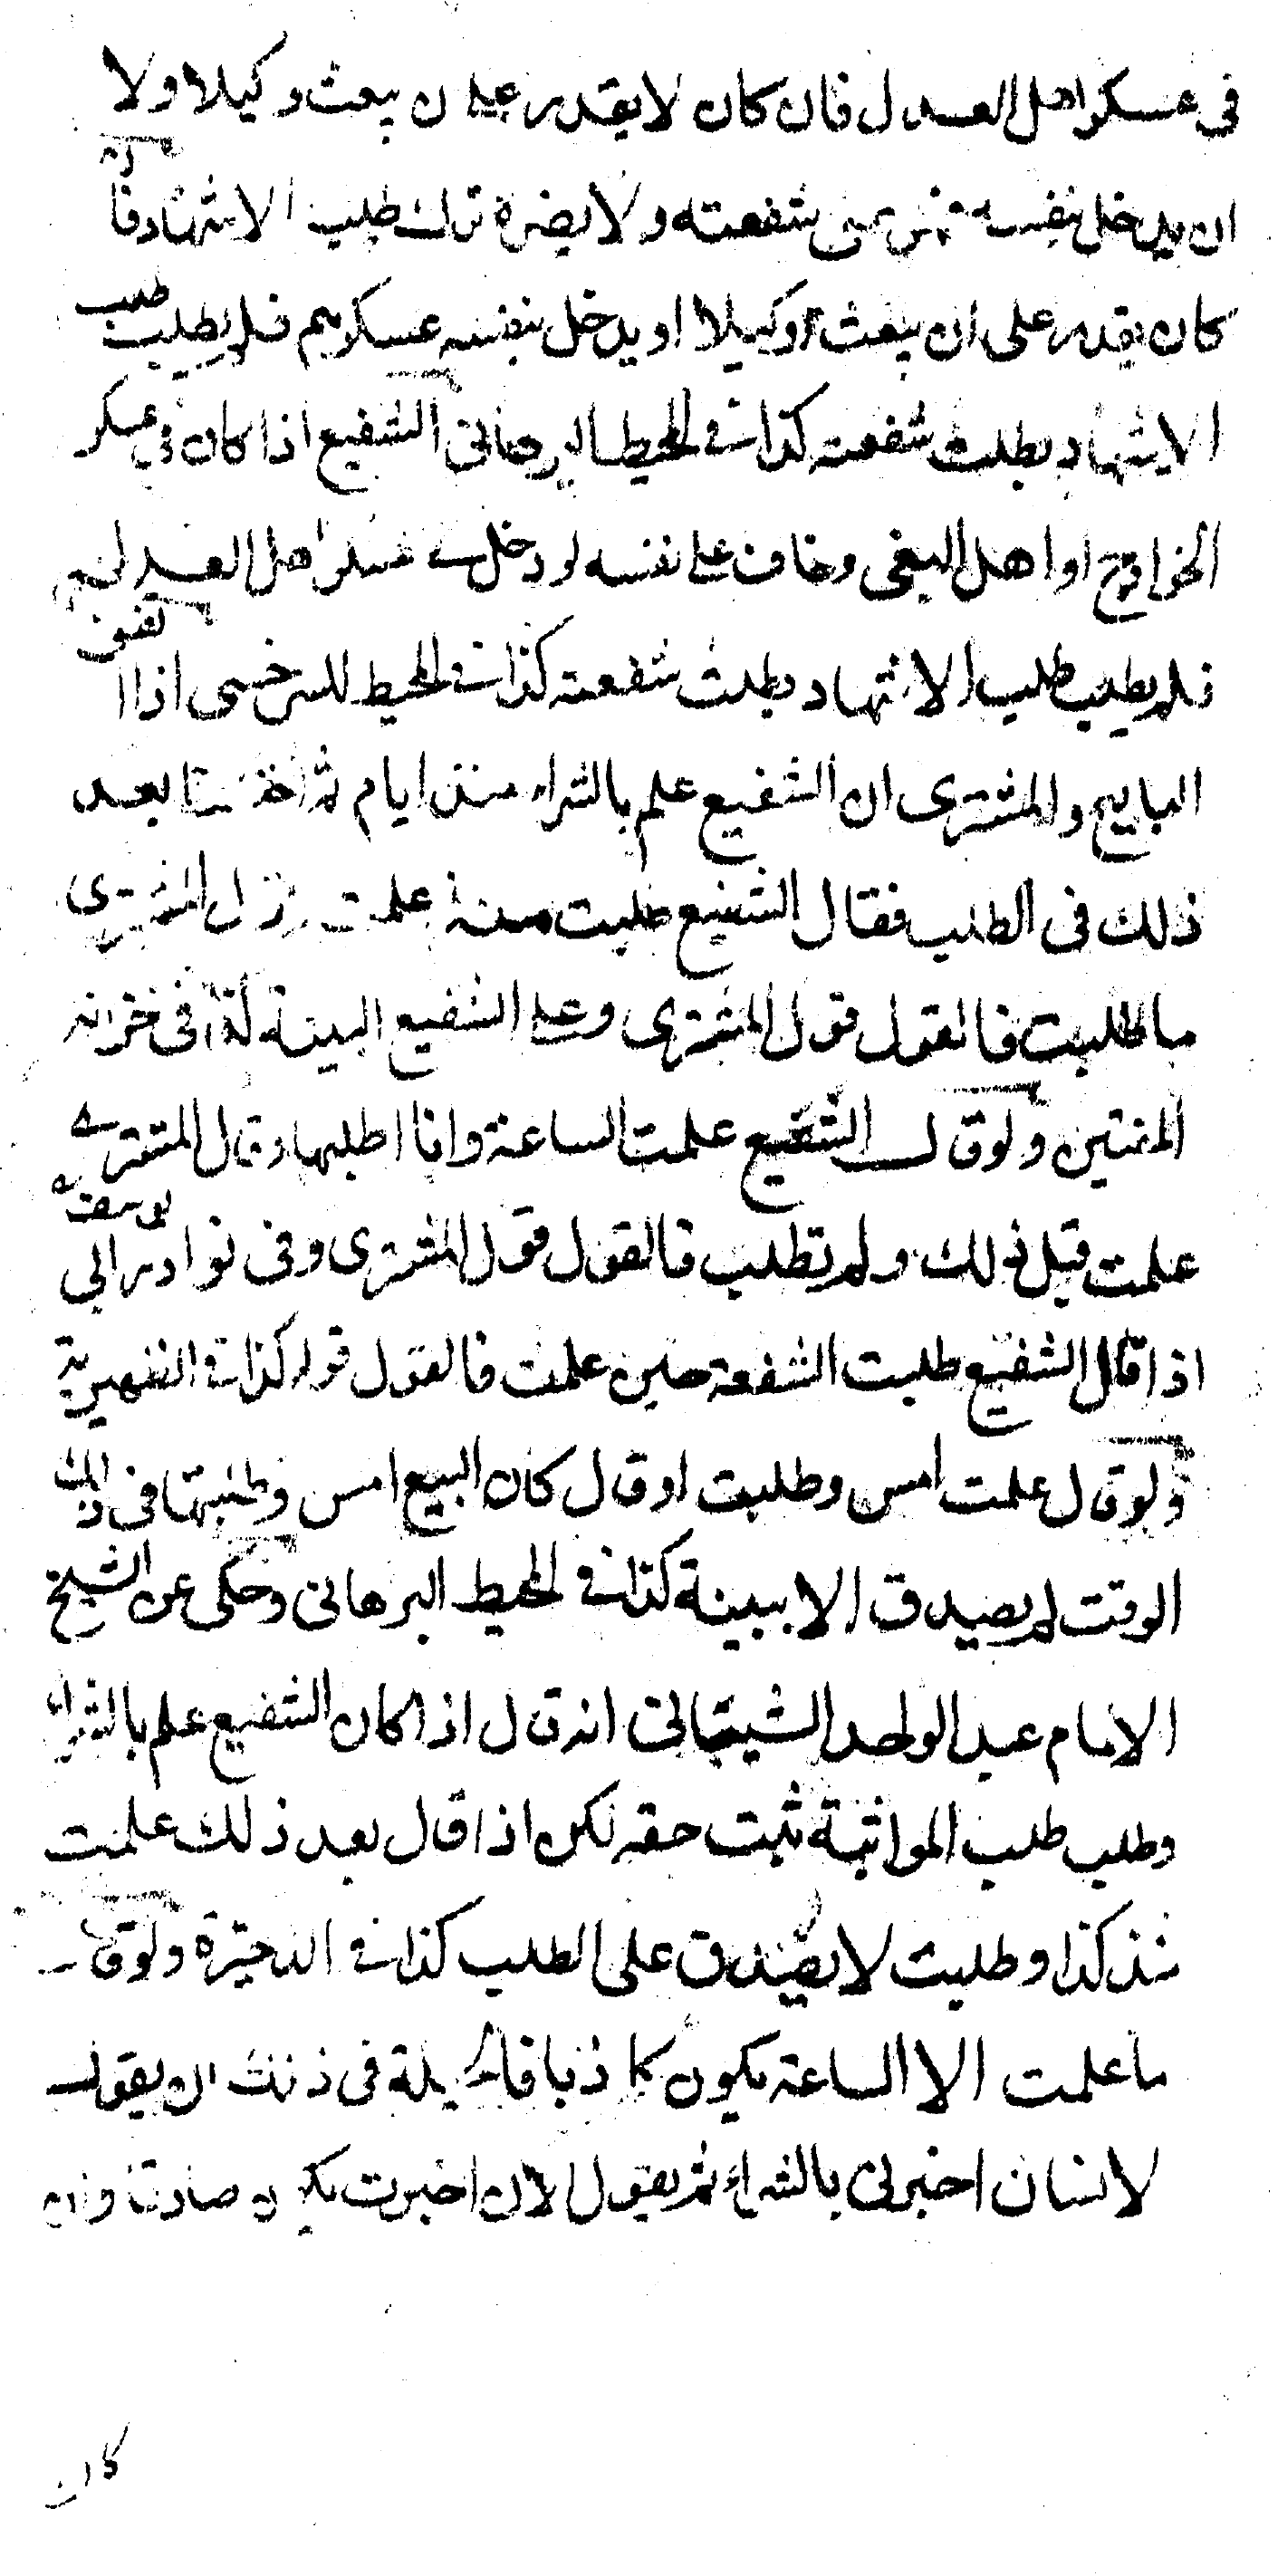 في عسكر اهل العدل فان كان لا يقدر على ان يبعث وكيلا ولا
ان يدخل بنفسه فهو على شفعته ولا يضره ترك طلب الاشهاد فان
كان يقدر على ان يبعث وكيلا او يدخل بنفسه عسكرهم فلم يطلب طلب
الاشهاد بطلت شفعته كذا في المحيط البرهاني الشفيع اذا كان في عسكر
الخوارج او اهل البغي وخاف على نفسه لو دخل في عسكر اهل العدل
فلم يطلب طلب الاشهاد بطلت شفعته كذا في المحيط للسرخسي اذا اتفق
البايع والمشتري ان الشفيع علم بالشراء منذ ايام ثم اختلفا بعد
ذلك في الطلب فقال الشفيع طلبت منذ علمت وقال المشتري
ما طلبت فالقول قول المشتري وعلى الشفيع البينة كذا في خزانة
المفتين ولو قال الشفيع علمت الساعة وانا اطلبها وقال المشتري
علمت قبل ذلك ولم تطلب فالقول قول المشتري وفي نوادر ابي يوسف
اذا قال الشفيع طلبت الشفعة حين علمت فالقول قوله كذا في الظهيرية
ولو قال علمت امس وطلبت او قال كان البيع امس وطلبتها في ذلك
الوقت لم يصدق الا ببينة كذا في المحيط البرهاني وحكي عن الشيخ
الامام عبد الواحد الشيباني انه قال اذا كان الشفيع علم بالشراء
وطلب طلب المواثبة ثبت حقه لكن اذا قال بعد ذلك علمت
منذ كذا وطلبت لا يصدق على الطلب كذا في الذخيرة ولو قال
ما علمت الا الساعة يكون كاذبا فالحيلة في ذلك ان يقول
لانسان اخبرني بالشراء ثم يقول الان اخبرت يكون صادقا وان
كان